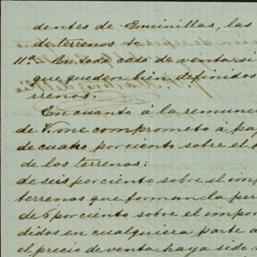 dentes de Encinillas, las
de terrenos &c
11ª En todo caso de venta si
que queden bien definidos
rrenos.
En cuanto á la remune
de V. me comprometo á pa
de cuatro por ciento sobre el
de los terrenos:
de seis por ciento sobre el imp
terrenos que forman la per
de 6 por ciento sobre el impor
didos en cualquiera parte a
el precio de venta haya sido